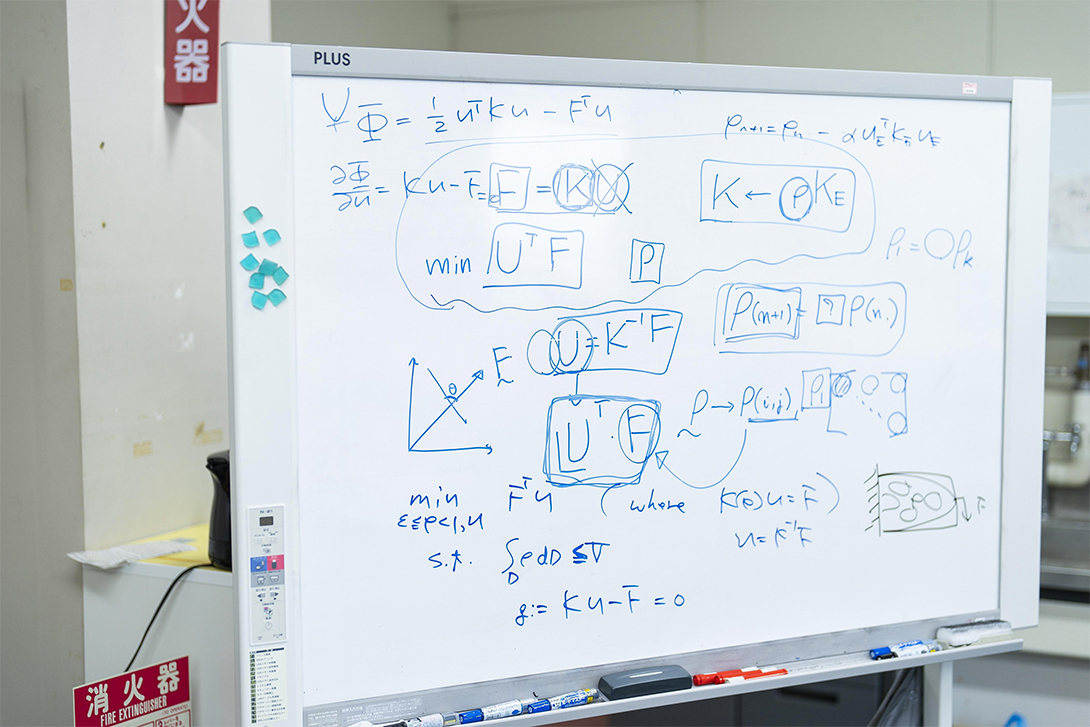 火器
PLUS
Ψ Φ = 1/2 uᵀKu − Fᵀu
ρₙ₊₁ = ρₙ − α u_Eᵀ Kₙ u_E
∂Φ/∂u = Ku − F = 0
F = K U
K ← ρ K_E
min Uᵀ F
ρ
ρ₁ = ○ρₖ
ρ(n+1) = ? ρ(n)
U = K⁻¹F
F
θ
Uᵀ · F
ρ → ρ(i,j)
ρ₁
min Fᵀu ( where K(ρ)u = F )
ε≤ρ<1, u
u = K⁻¹F
F
s.t. ∫_D ρ dD ≤ V
g := Ku − F = 0
消火器
FIRE EXTINGUISHER